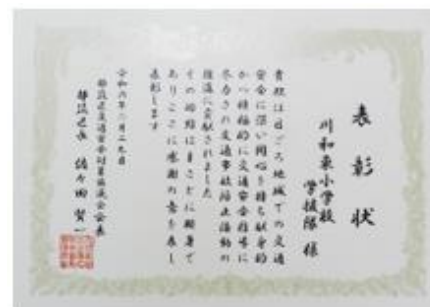 表彰状
川和東小学校
学援隊 様
貴殿は日ごろ地域での交通
安全に深い関心を持ち献身的
かつ積極的に交通安全指導に
尽力され交通事故防止活動の
推進に貢献されました
その功績はまことに顕著で
ありここに感謝の意を表し
表彰します
令和六年二月二九日
都筑区交通安全対策協議会会長
都筑区長 佐々田 賢一